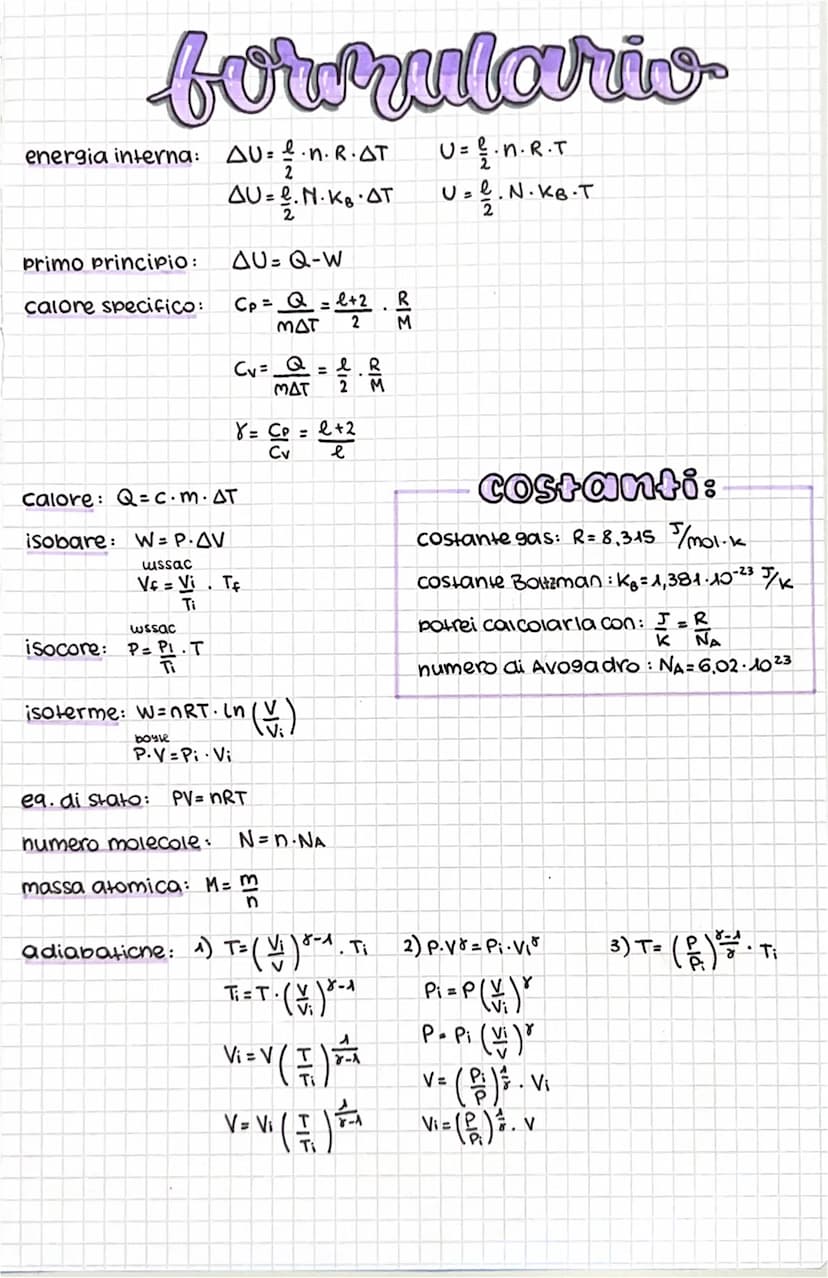 formulario
energia interna: ΔU = ℓ/2 · n · R · ΔT U = ℓ/2 · n · R · T
ΔU = ℓ/2 · N · KB · ΔT U = ℓ/2 · N · KB · T
primo principio: ΔU = Q-W
calore specifico: Cp = Q/mΔT = ℓ+2/2 · R/M
Cv = Q/mΔT = ℓ/2 · R/M
γ = Cp/Cv = ℓ+2/ℓ
calore: Q = c · m · ΔT
isobare: W = P · ΔV
ussac
Vf = Vi/Ti · Tf
ussac
isocore: P = Pi/Ti · T
isoterme: W = nRT · ln (V/Vi)
boyle
P · V = Pi · Vi
eq. di stato: PV = nRT
numero molecole: N = n · NA
massa atomica: M = m/n
costanti:
costante gas: R = 8,315 J/mol·k
costante Boltzman: KB = 1,381 · 10^-23 J/K
potrei calcolarla con: J/K = R/NA
numero di Avogadro: NA = 6,02 · 10^23
adiabatiche: 1) T = (Vi/V)^γ-1 · Ti 2) P · V^γ = Pi · Vi^γ 3) T = (P/Pi)^γ-1/γ · Ti
Ti = T · (V/Vi)^γ-1 Pi = P (V/Vi)^γ
P = Pi (Vi/V)^γ
Vi = V (T/Ti)^1/γ-1 V = (Pi/P)^1/γ · Vi
V = Vi (T/Ti)^1/γ-1 Vi = (P/Pi)^1/γ · V